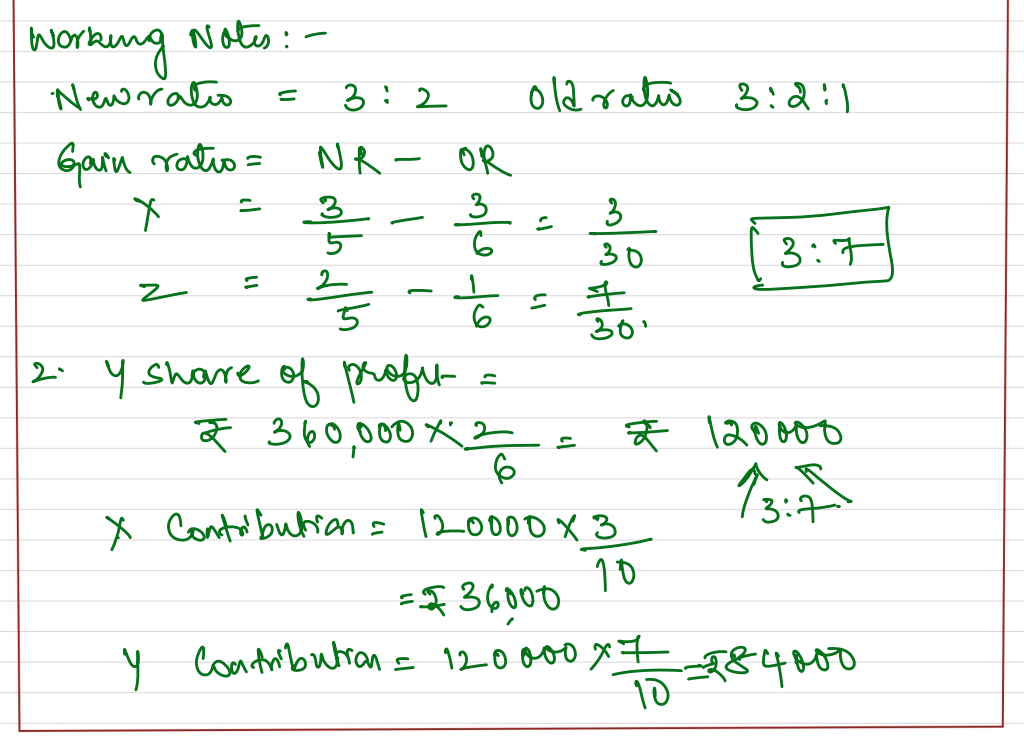 Working Notes: -
New ratio = 3 : 2 Old ratio 3:2:1
Gain ratio = NR - OR
X = 3/5 - 3/6 = 3/30
3:7
Z = 2/5 - 1/6 = 7/30.
2. Y share of profit =
₹ 360,000 X 2/6 = ₹ 120000
3:7
X Contribution = 120000 X 3/10
= ₹ 36,000
Y Contribution = 120000 X 7/10 = ₹84000